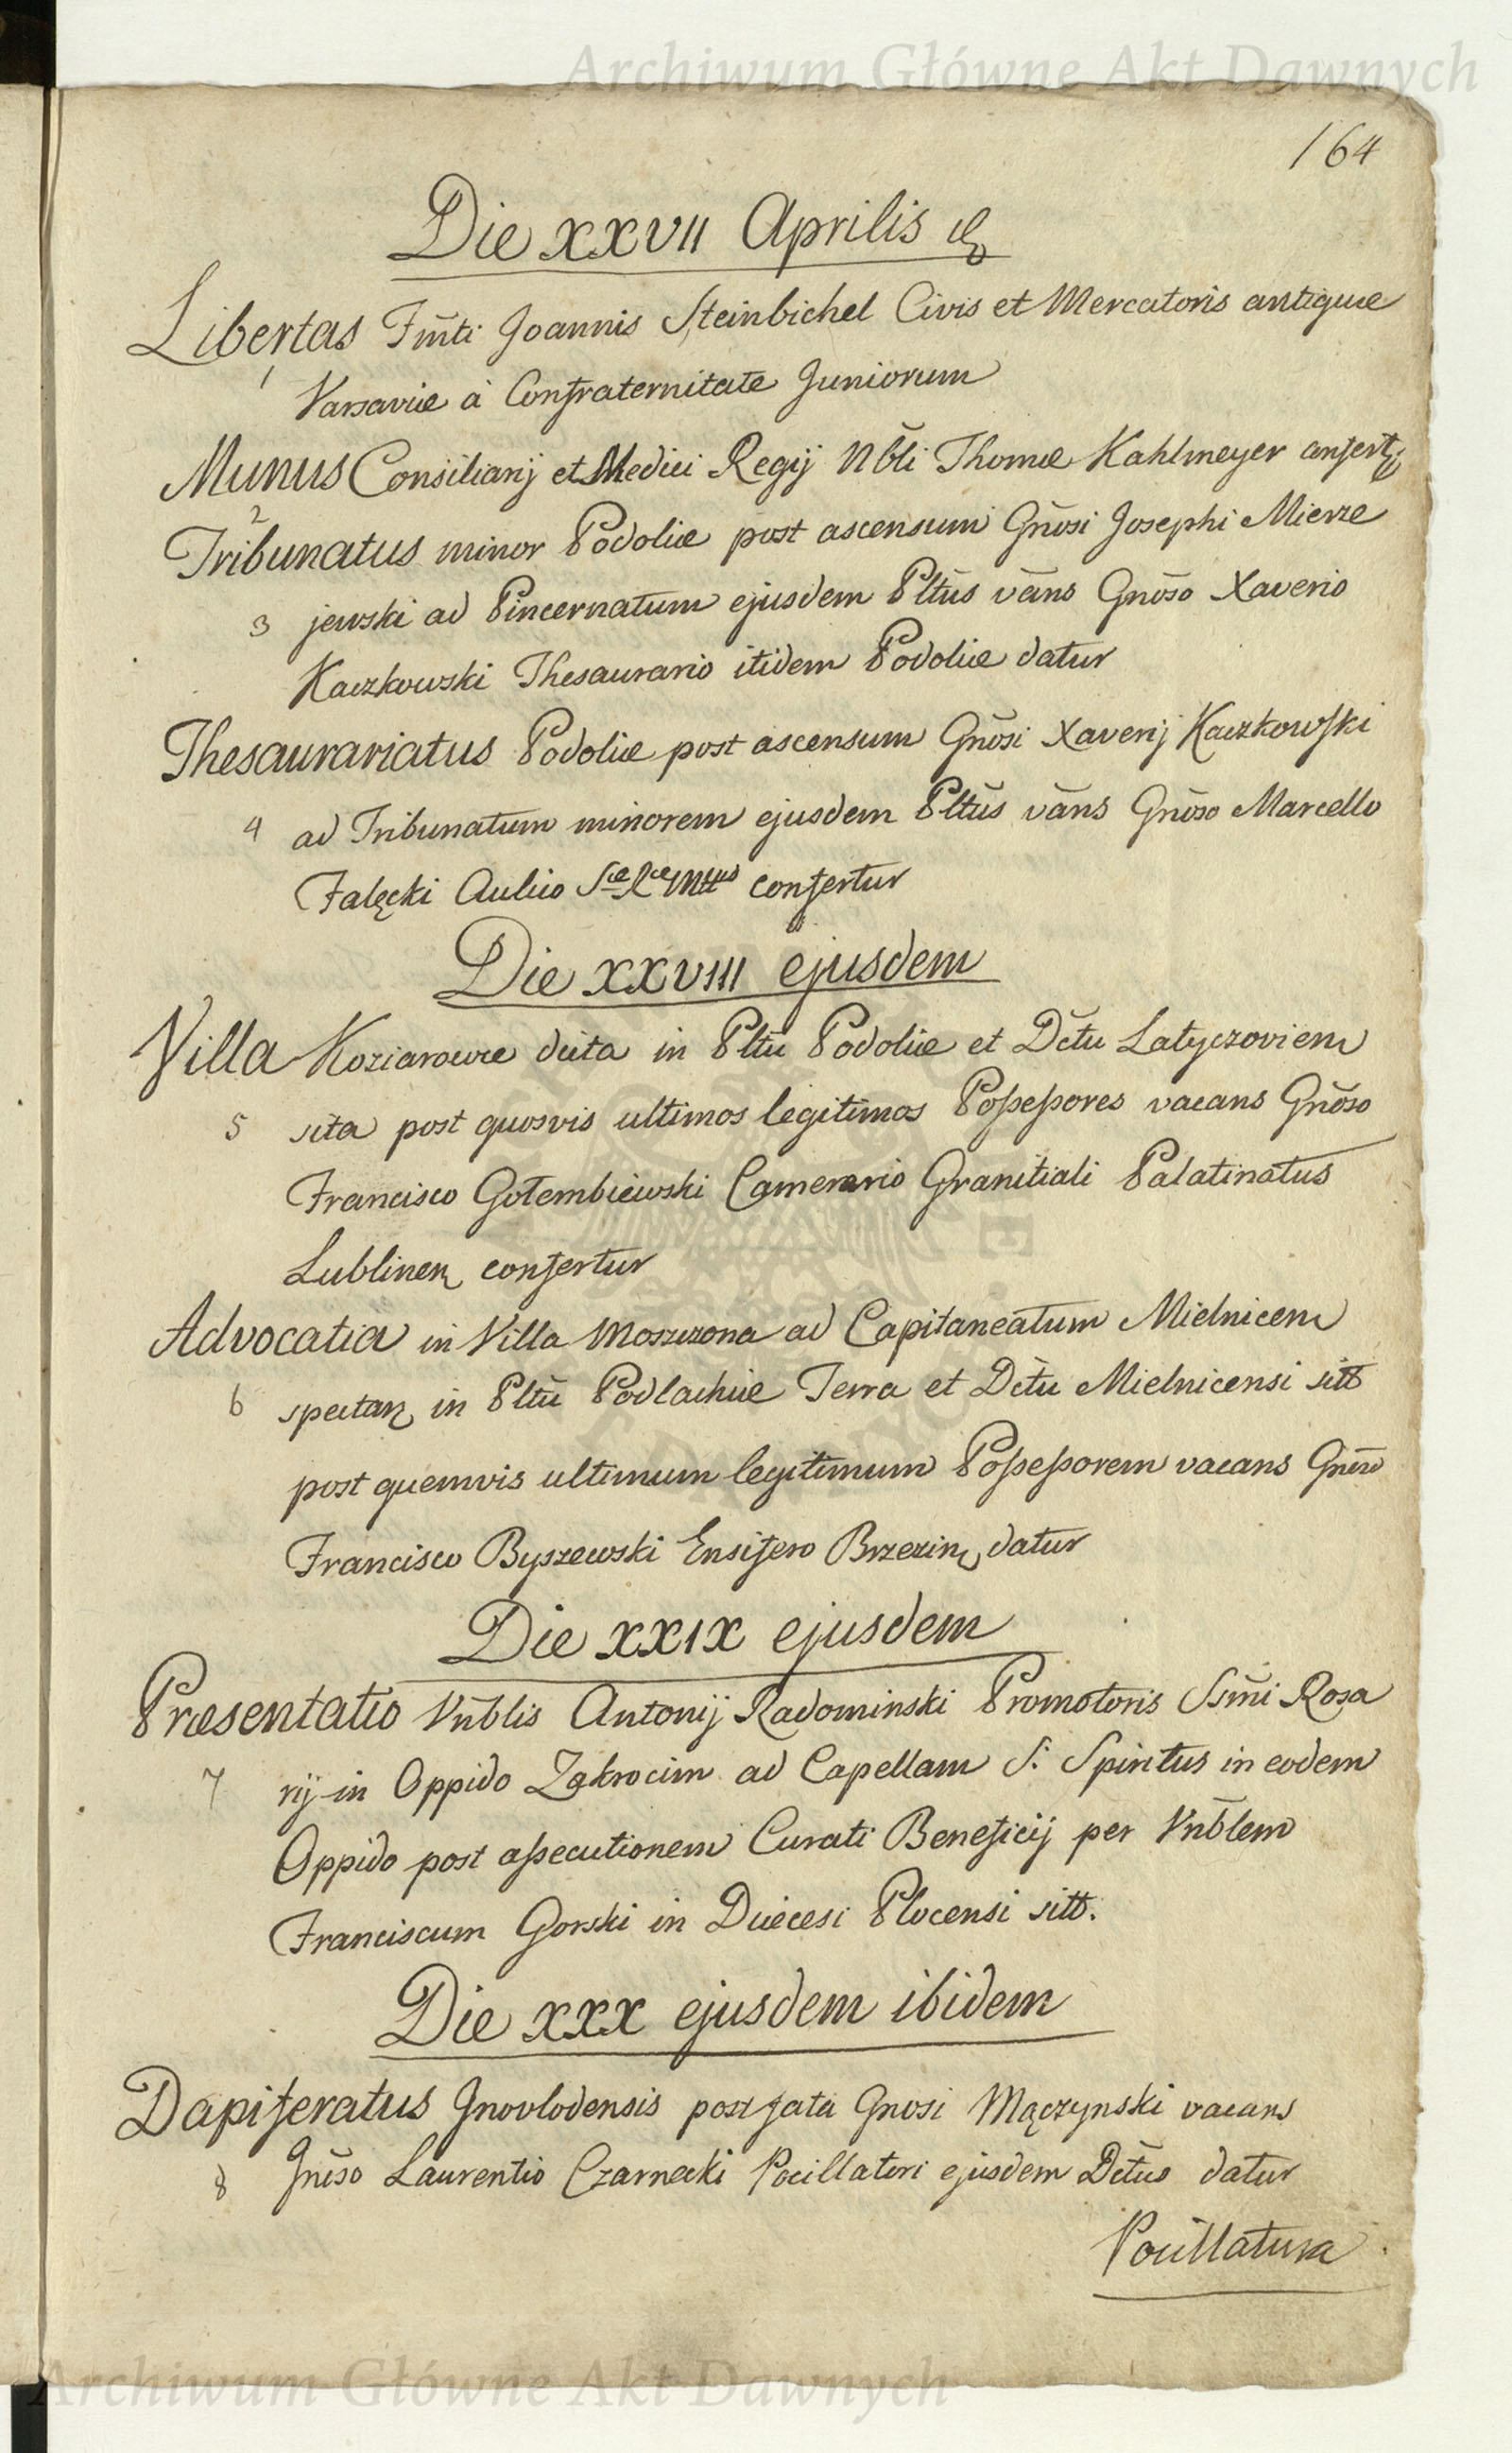 Archiwum Główne Akt Dawnych
164
Die XXVII Aprilis
Libertas Fm̃ti Joannis Steinbichel Civis et Mercatoris antiquæ
1 Varsaviæ à Confraternitate Juniorum
Munus Consiliarij et Medici Regij Nb̃li Thomæ Kahlmeyer
2
Tribunatus minor Podoliæ post ascensum Gñosi Josephi Mierze
3 jewski ad Pincernatum ejusdem Pltũs vãns Gnõso Xaverio
Kaczkowski Thesaurario itidem Podoliæ datur
Thesaurariatus Podoliæ post ascensum Gnõsi Xaverij Kaczkowski
4 ad Tribunatum minorem ejusdem Pltũs vãns Gnõso Marcello
Falęcki Aulico Sæ Ræ Mttis confertur
Die XXVIII ejusdem
Villa Koziarowce dicta in Pltũ Podoliæ et Dc̃tu Latyczovien
5 sita post quosvis ultimos legitimos Possessores vacans Gnõso
Francisco Gołembiewski Camerario Granitiali Palatinatus
Lublinen confertur
Advocatia in Villa Moszczona ad Capitaneatum Mielnicen
6 spectan in Pltũ Podlachiæ Terra et Dc̃tu Mielnicensi sitt
post quemvis ultimum legitimum Possessorem vacans Gnõso
Francisco Byszewski Ensifero Brzezin datur
Die XXIX ejusdem
Præsentatio Vnb̃lis Antonij Radominski Promotoris Ssm̃i Rosa
7 rij in Oppido Zakrocim ad Capellam S. Spiritus in eodem
Oppido post assecutionem Curati Beneficij per Vnb̃lem
Franciscum Gorski in Diæcesi Plocensi sitt.
Die XXX ejusdem ibidem
Dapiferatus Jnovlodensis post fata Gnosi Mączynski vacans
8 Gnõso Laurentio Czarnecki Pocillatori ejusdem Dc̃tus datur
Pocillatura
Archiwum Główne Akt Dawnych